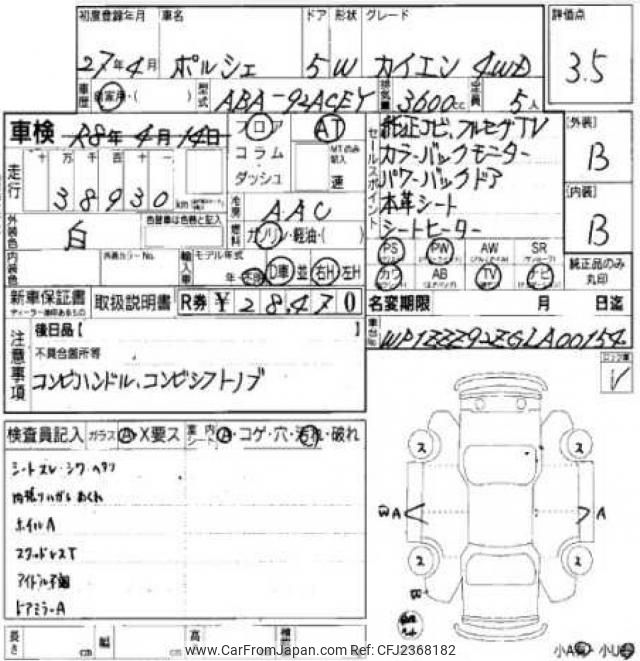 初度登録年月 車名 ドア 形状 グレード 評価点
27年4月 ポルシェ 5 W カイエン 4WD 3.5
車歴 自家用・( ) 型式 ABA-92ACEY 排気量 3600cc 定員 5人
車検 R8年4月14日 フロア AT
コラム MTのみ記入
ダッシュ 速
セールスポイント
純正ナビ、フルセグTV
カラーバックモニター
パワーバックドア
本革シート
シートヒーター
[外装]
B
[内装]
B
走行 十万千百十
38930 km
冷房 AAC
外装色 白 色替車は色番と記入
燃料 ガソリン・軽油・( )
内装色 外装カラーNo. 輸入車 モデル年式
年 D車 並 右H 左H
PS PW AW SR
カワ AB TV ナビ
純正品のみ丸印
新車保証書 取扱説明書 R券 ¥28,470
名変期限 月 日迄
車台No. WP1ZZZ92ZGLA00154
注意事項
後日品【
不具合箇所等
コンビハンドル、コンビシフトノブ
検査員記入 ガラス A・X要ス 室内シート A・コゲ・穴・汚れ・破れ
シートスレ・シワ・ヘタリ
ホイルA
スタッドレスT
ドアミラーA
ス ス
W A A
ス ス
長さ cm 幅 cm 高
小A 小U
www.CarFromJapan.com Ref: CFJ2368182